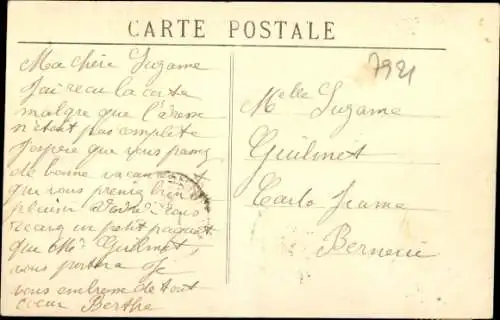 CARTE POSTALE
7921
Ma chère Suzanne
J'ai reçu la carte
malgre que l'adresse
n'étant pas complete
J'espère que vous passez
de bonne vacances et
que vous prenez bien
plaisir vous
un petit paquet
que Mr Guilmet
vous portera Je
vous embrasse de tout
coeur Berthe
Melle Suzanne
Guilmet
Carlo Jeanne
Berneri